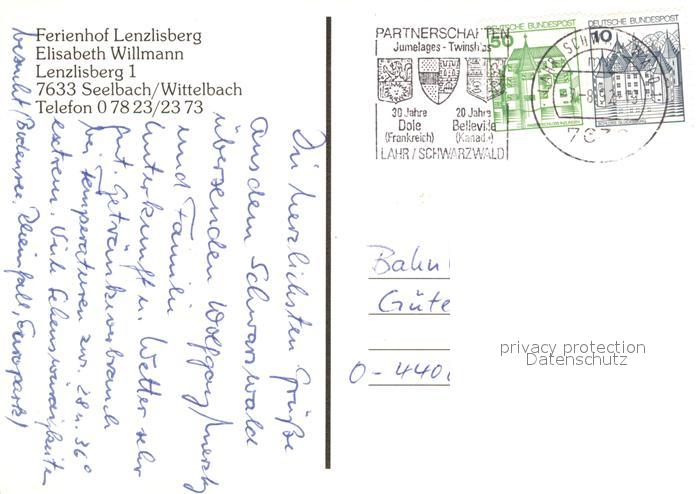 Ferienhof Lenzlisberg
Elisabeth Willmann
Lenzlisberg 1
7633 Seelbach/Wittelbach
Telefon 0 78 23/23 73
Die herzlichsten Grüße
aus dem Schwarzwald
übersenden Wolfgang
und Familie
Unterkunft u. Wetter sehr
gut. Getränkeverbrauch
bei Temperaturen zw. 28 u. 36°
extrem. Viele Sehenswürdigkeiten
besucht (Bodensee, Rheinfall, Europark)
PARTNERSCHAFTEN
Jumelages - Twinships
30 Jahre
Dole
(Frankreich)
20 Jahre
Belleville
(Kanada)
LAHR / SCHWARZWALD
50
DEUTSCHE BUNDESPOST
10
DEUTSCHE BUNDESPOST
Bahn
Güte
O-440
privacy protection
Datenschutz